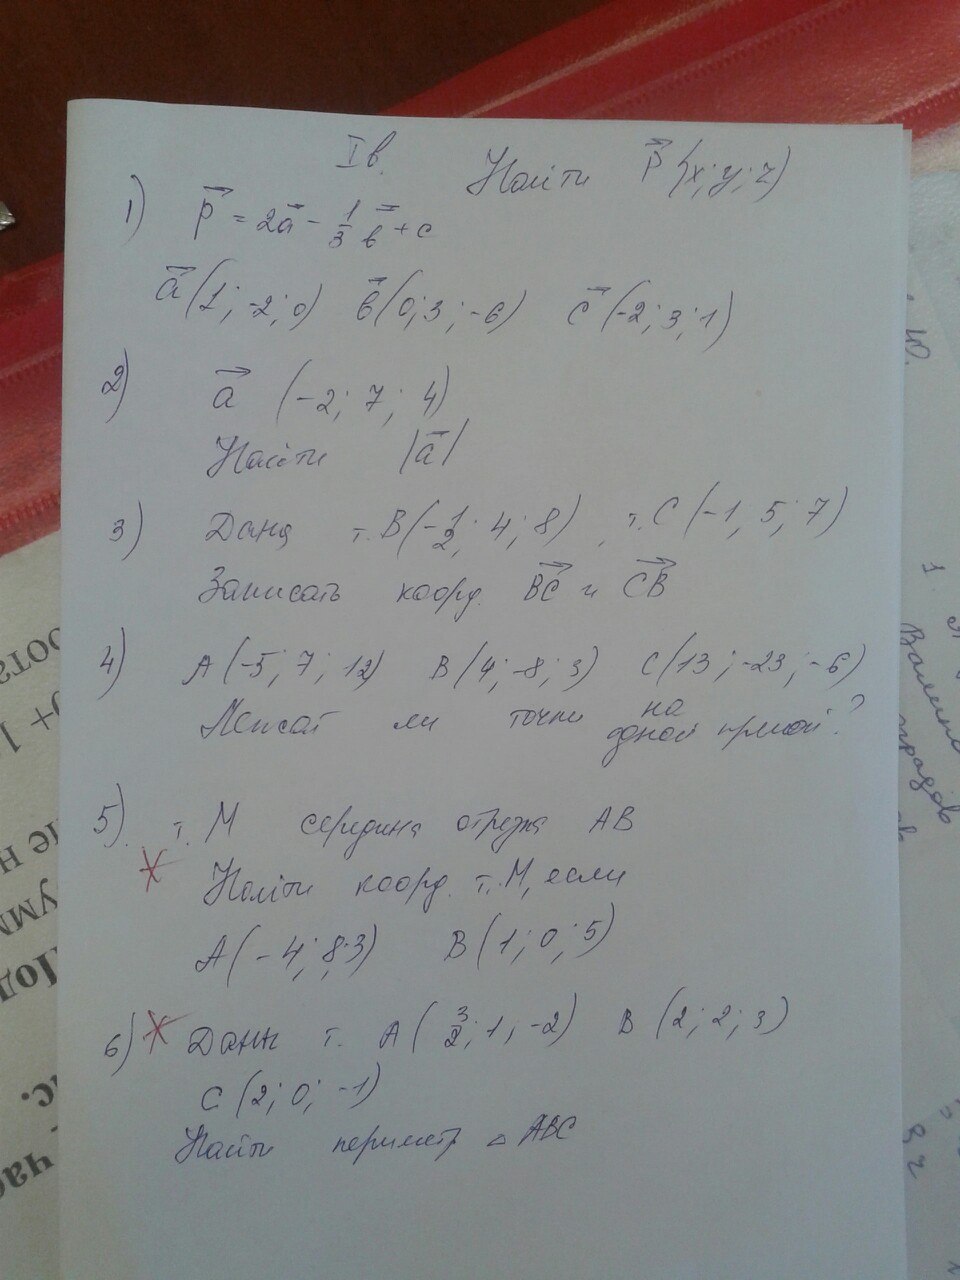 I в. Найти P⃗ {x; y; z)
1) P⃗ = 2a⃗ - 1/3 в⃗ + c
a⃗ (1; -2; 0) в⃗ (0; 3; -6) c⃗ (-2; 3; 1)
2) a⃗ (-2; 7; 4)
Найти |a⃗|
3) Дана т. B(-1/2; 4; 8), т. C (-1, 5; 7)
Записать коорд. BC⃗ и CB⃗
4) A (-5; 7; 12) B (4; -8; 3) C (13; -23; -6)
Лежат ли точки на одной прямой?
5) т. M середина отрезка AB
Найти коорд. т. M, если
A (-4; 8; 3) B (1; 0; 5)
6) Даны т. A (3/2; 1; -2) B (2; 2; 3)
C (2; 0; -1)
Найти периметр △ ABC